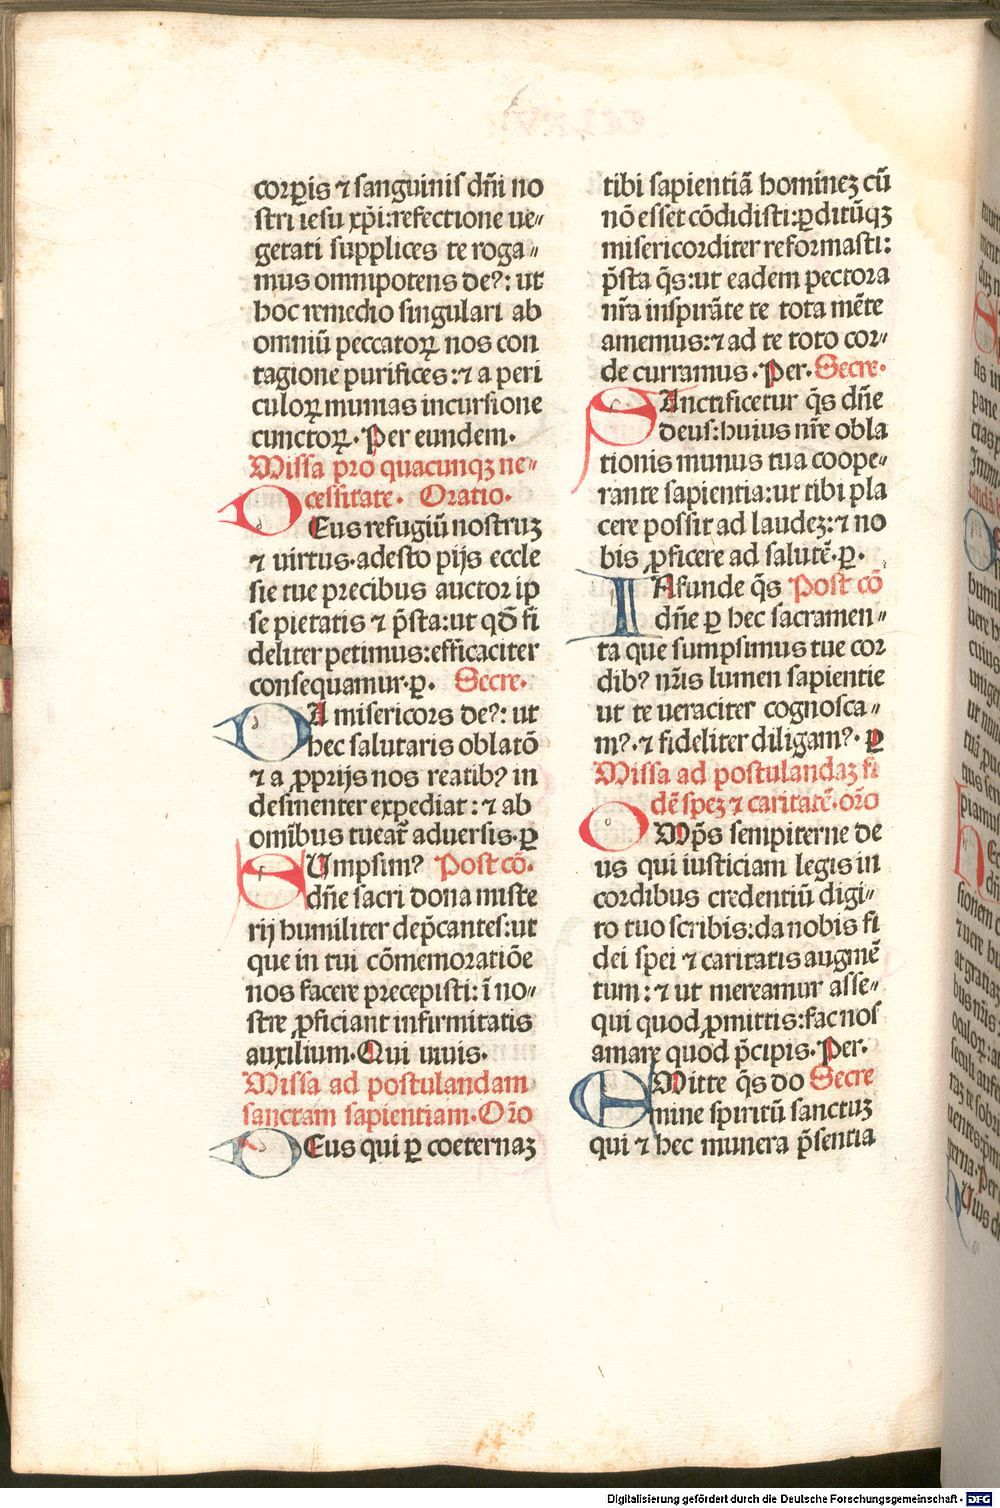 corꝑis ⁊ sanguinis dñi no
stri iesu xp̃i:refectione ue⸗
getati supplices te roga⸗
mus omnipotens deꝰ: ut
hoc remedio singulari ab
omniũ peccatoꝝ nos con
tagione purifices:⁊ a peri
culoꝝ munias incursione
cunctoꝝ. Per eundem.
Missa pro quacunqꝫ ne⸗
cessitate. Oratio.
DEus refugiũ nostruꝫ
⁊ uirtus.adesto pijs eccle
sie tue precibus auctor ip
se pietatis ⁊ p̃sta:ut qđ fi
deliter petimus:efficaciter
consequamur.ꝑ. Secre.
DA misericors deꝰ: ut
hec salutaris oblatõ
⁊ a ꝓprijs nos reatibꝰ in
desinenter expediat:⁊ ab
om̃ibus tueat᷑ aduersis.ꝑ
SUmpsimꝰ Post cõ.
dñe sacri dona miste
rij humiliter dep̃cantes:ut
que in tui cõmemoratiõe
nos facere precepisti:ĩ no⸗
stre ꝓficiant infirmitatis
auxilium.Qui uiuis.
Missa ad postulandam
sanctam sapientiam.Or̃o
DEus qui ꝑ coeternaꝫ
tibi sapientiã homineꝫ cũ
nõ esset cõdidisti:ꝑditũqꝫ
misericorditer reformasti:
p̃sta q̃s:ut eadem pectora
nr̃a inspirãte te tota mẽte
amemus:⁊ ad te toto cor⸗
de curramus.Per. Secre.
SAnctificetur q̃s dñe
deus:huius nr̃e obla
tionis munus tua coope⸗
rante sapientia:ut tibi pla
cere possit ad laudeꝫ:⁊ no
bis ꝓficere ad salutẽ.ꝑ.
INfunde q̃s Post cõ
dñe ꝑ hec sacramen⸗
ta que sumpsimus tue cor
dibꝰ nr̃is lumen sapientie
ut te ueraciter cognosca⸗
mꝰ.⁊ fideliter diligamꝰ.ꝑ
Missa ad postulandaꝫ fi
dẽ speꝫ ⁊ caritatẽ.or̃o
OMp̃s sempiterne de
us qui iusticiam legis in
cordibus credentiũ digi⸗
to tuo scribis:da nobis fi
dei spei ⁊ caritatis augmẽ
tum:⁊ ut mereamur asse⸗
qui quod ꝓmittis:fac nos
amare quod p̃cipis.Per.
EMitte q̃s do Secre
mine spiritũ sanctuꝫ
qui ⁊ hec munera p̃sentia
Digitalisierung gefördert durch die Deutsche Forschungsgemeinschaft - DFG